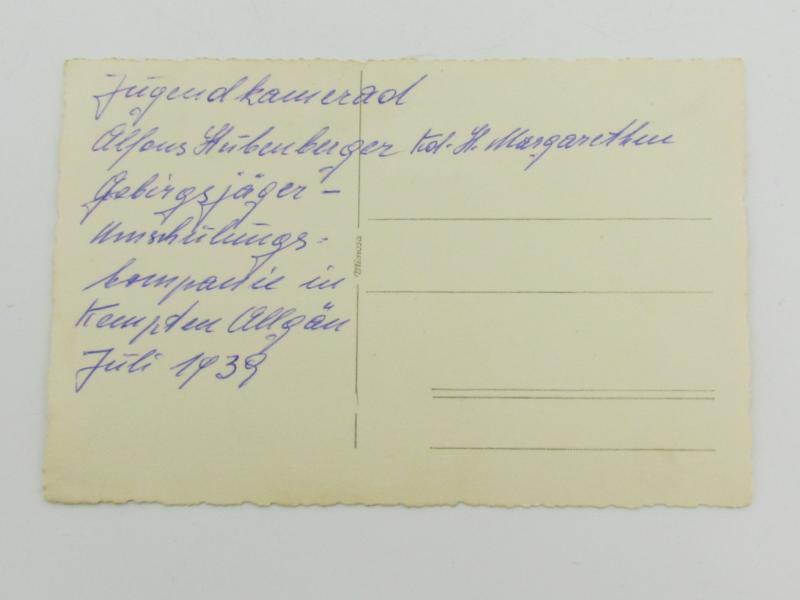 Jugendkamerad
Alfons Hubenberger Kd. St. Margarethen
Gebirgsjäger-
Umschulungs-
kompanie in
Kempten Allgäu
Juli 1939
Mimosa